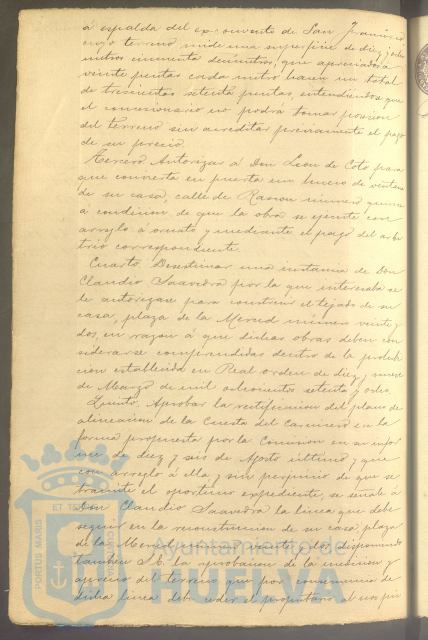 á espalda del ex-convento de San Francisco
cuyo terreno mide una superficie de diez y ocho
metros cincuenta decímetros, que apreciados á
veinte pesetas cada metro hacen un total
de trescientas setenta pesetas, entendiéndose que
el concesionario no podrá tomar posesion
del terreno sin acreditar previamente el pago
de su precio.
Tercero. Autorizar á Don Leon de Coto para
que convierta en puerta un hueco de ventana
de su casa, calle de Rascon número
á condicion de que la obra se ejecute con
arreglo á ornato y mediante el pago del arbi
trio correspondiente.
Cuarto. Desestimar una instancia de Don
Claudio Saavedra por la que interesaba se
le autorizase para construir el tejado de su
casa, plaza de la Merced número veinte y
dos, en razon á que dichas obras deben con
siderarse comprendidas dentro de la prohibi
cion establecida en Real orden de diez y nueve
de Marzo de mil ochocientos setenta y ocho.
Quinto. Aprobar la rectificacion del plano de
alineacion de la Cuesta del Carnicero en la
forma propuesta por la Comision en su infor
me de diez y seis de Agosto último y que
con arreglo á ella y sin perjuicio de que se
tramite el oportuno expediente, se señale á
Don Claudio Saavedra la linea que debe
seguir en la reconstruccion de su casa, plaza
de la Merced número veinte y dos, disponiendo
tambien S.E. la aprobacion de la medicion y
aprecio del terreno que por consecuencia de
dicha linea debe ceder el propietario al
Ayuntamiento de
HUELVA
PORTUS MARIS
ET TERRAE